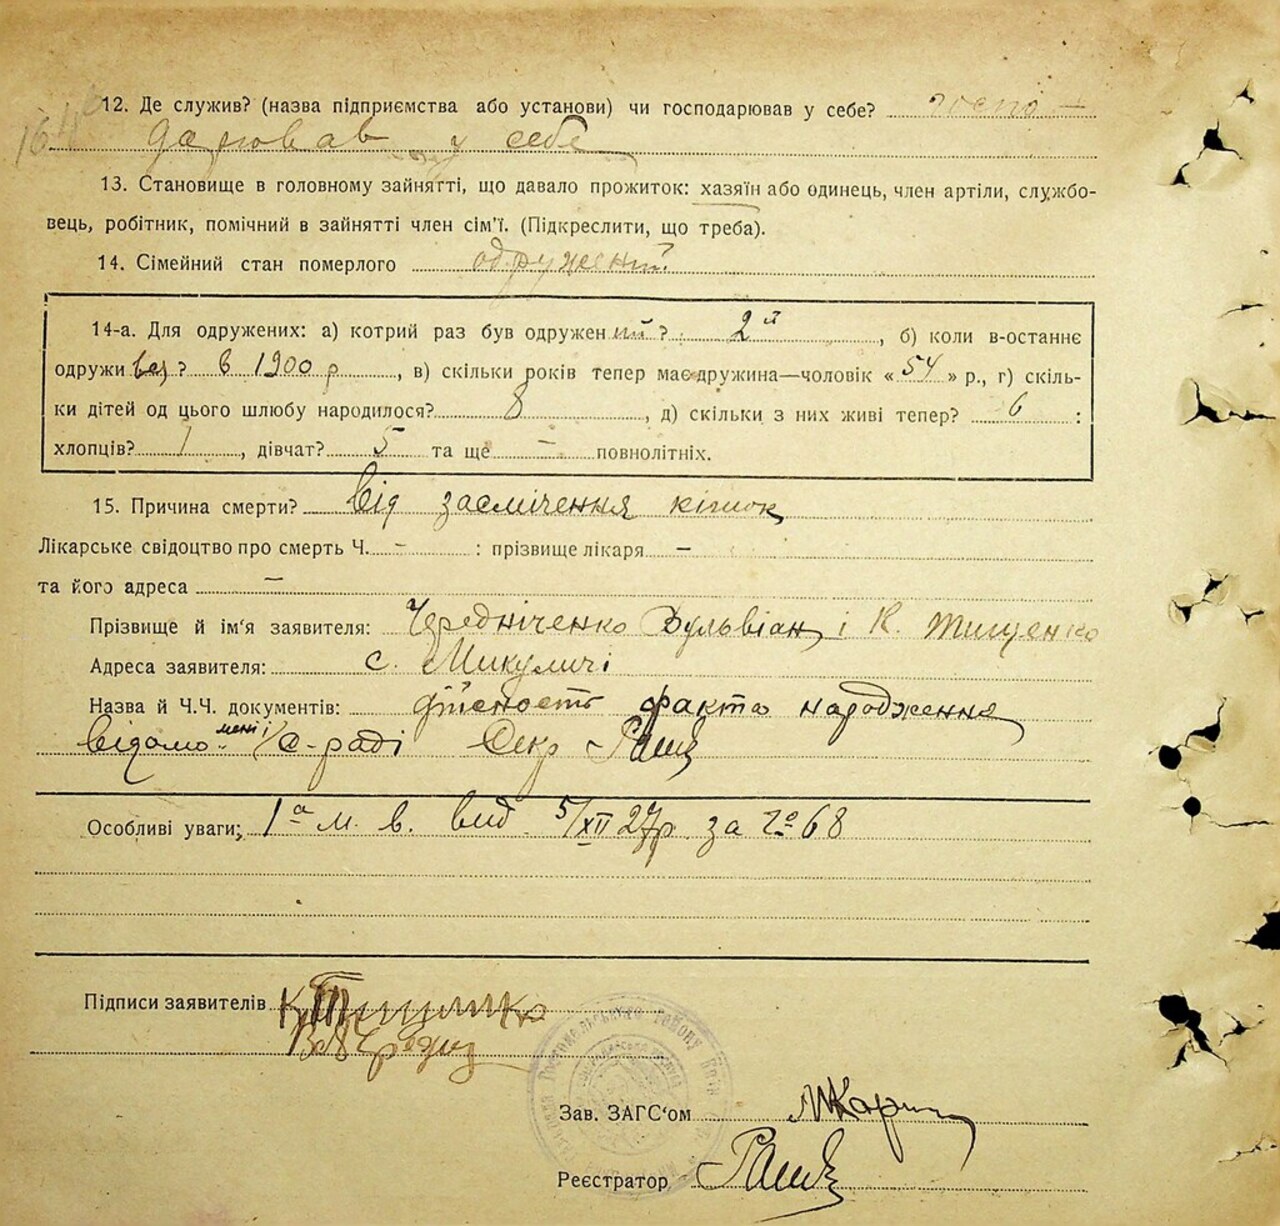 12. Де служив? (назва підприємства або установи) чи господарював у себе? госпо-
дарював у себе
13. Становище в головному зайнятті, що давало прожиток: хазяїн або одинець, член артіли, службо-
вець, робітник, помічний в зайнятті член сім'ї. (Підкреслити, що треба).
14. Сімейний стан померлого одружений
14-а. Для одружених: а) котрий раз був одружен ий ? 2й, б) коли в-останнє
одружи вся ? в 1900 р, в) скільки років тепер має дружина—чоловік « 54 » р., г) скіль-
ки дітей од цього шлюбу народилося? 8, д) скільки з них живі тепер? 6 :
хлопців? 1, дівчат? 5 та ще - повнолітніх.
15. Причина смерти? Від засмічення кішок
Лікарське свідоцтво про смерть Ч. - : прізвище лікаря -
та його адреса -
Прізвище й ім'я заявителя: Чередніченко і К. Тищенко
Адреса заявителя: с. Микуличі
Назва й Ч.Ч. документів: дійсность факта народження
відомо мені і с-раді Секр
Особливі уваги: 1а м. в. вид. 5/XII 27р за № 68
Підписи заявителів К Тищенко
Зав. ЗАГС'ом
Реєстратор